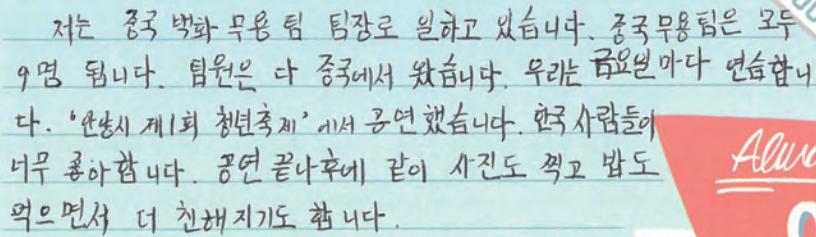 저는 중국 백화 무용 팀 팀장로 일하고 있습니다. 중국무용팀은 모두
9명 됩니다. 팀원은 다 중국에서 왔습니다. 우리는 금요일마다 연습합니
다. '안양시 제1회 청년축제'에서 공연했습니다. 한국 사람들이
너무 좋아합니다. 공연 끝나후에 같이 사진도 찍고 밥도
먹으면서 더 친해지기도 합니다.